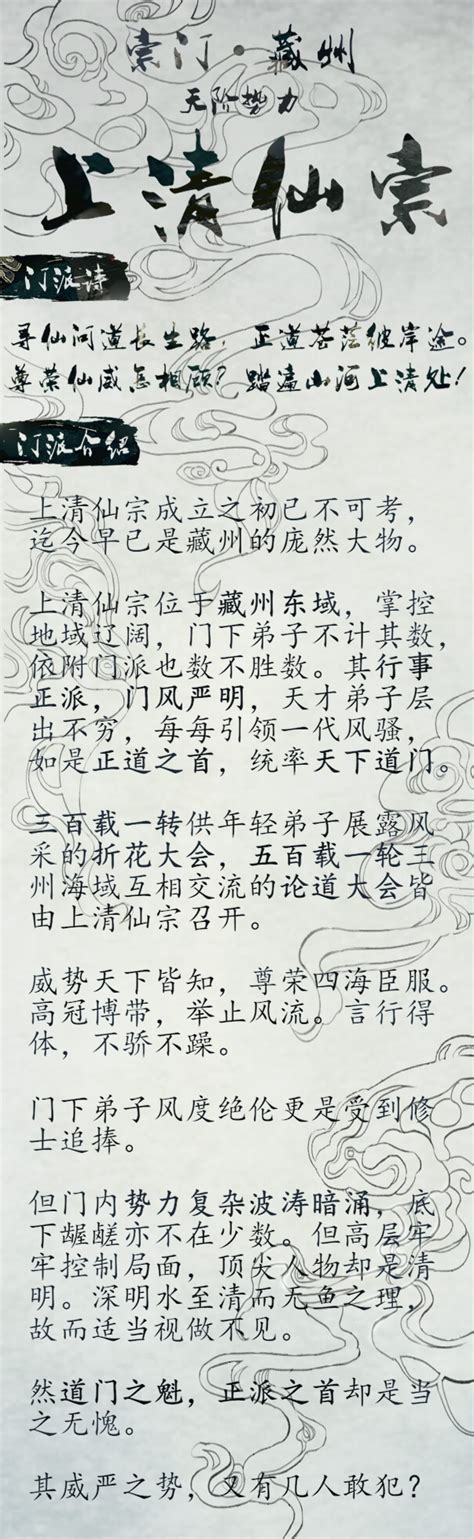 宗门·藏州
天阶势力
上清仙宗
门派诗
寻仙问道长生路，正道苍茫彼岸途。
尊荣仙威怎相顾？踏遍山河上清处！
门派介绍
上清仙宗成立之初已不可考，
迄今早已是藏州的庞然大物。
上清仙宗位于藏州东域，掌控
地域辽阔，门下弟子不计其数，
依附门派也数不胜数。其行事
正派，门风严明，天才弟子层
出不穷，每每引领一代风骚，
如是正道之首，统率天下道门。
三百载一转供年轻弟子展露风
采的折花大会，五百载一轮三
州海域互相交流的论道大会皆
由上清仙宗召开。
威势天下皆知，尊荣四海臣服。
高冠博带，举止风流。言行得
体，不骄不躁。
门下弟子风度绝伦更是受到修
士追捧。
但门内势力复杂波涛暗涌，底
下龌龊亦不在少数。但高层牢
牢控制局面，顶尖人物却是清
明。深明水至清而无鱼之理，
故而适当视做不见。
然道门之魁，正派之首却是当
之无愧。
其威严之势，又有几人敢犯？